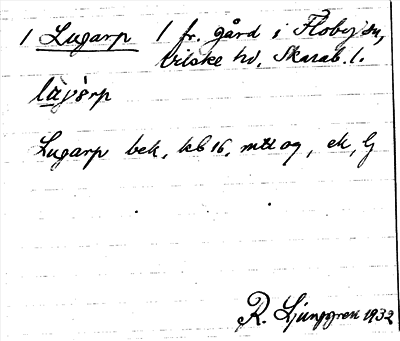 1 Lugarp 1 fr. gård i Floby sn,
Vilske hd, Skarab. l.
Lugarp bek, kb 16, mtl og, ek, lj
R. Ljunggren 1932